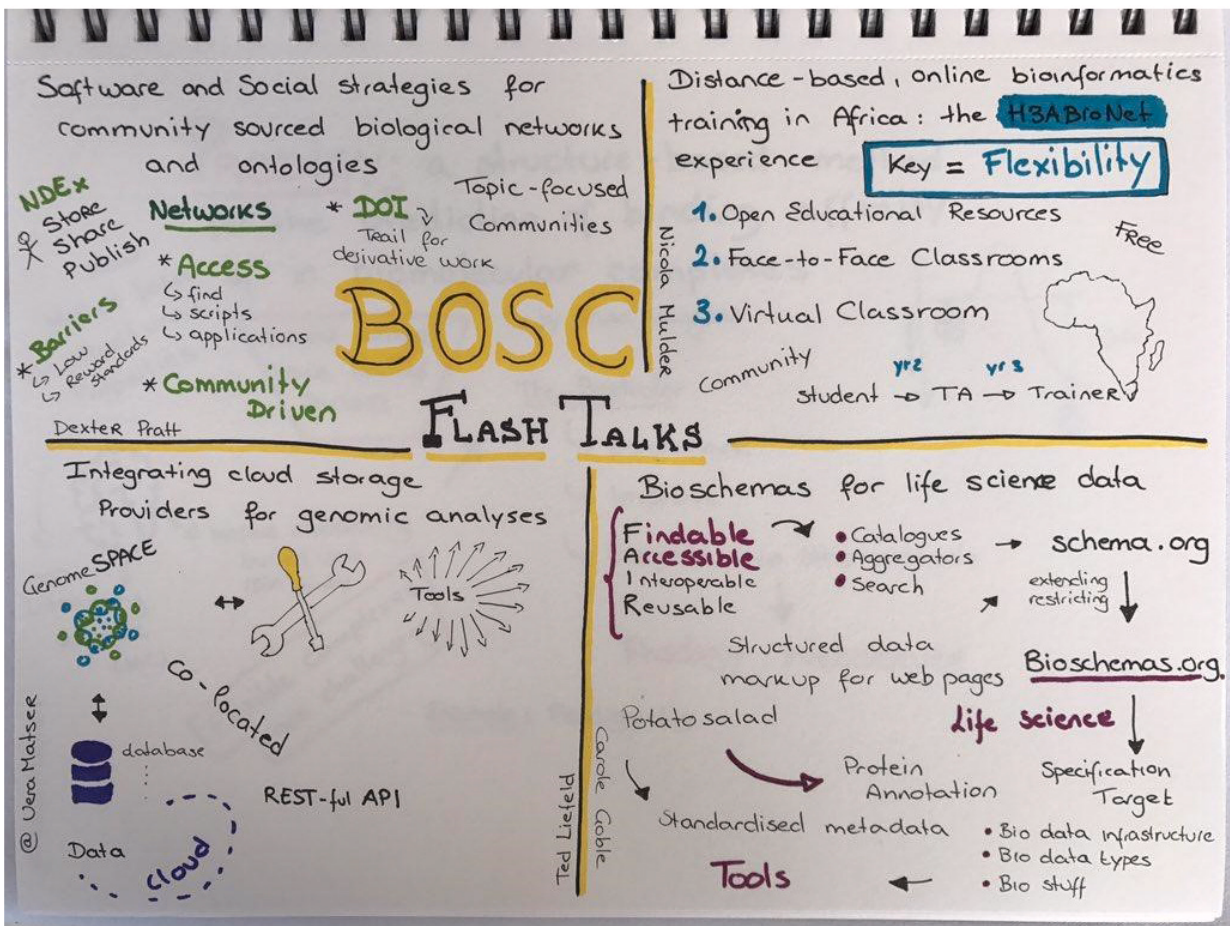 Software and Social strategies for
community sourced biological networks
and ontologies
NDEx
Store
Share
Publish
Networks
* Access
↳ find
↳ scripts
↳ applications
* DOI
Trail for
derivative work
Topic-focused
Communities
* Barriers
↳ Low
Reward
↳ Standards
* Community
Driven
Dexter Pratt
BOSC
FLASH TALKS
Distance-based, online bioinformatics
training in Africa: the H3ABioNet
experience
Key = Flexibility
1. Open Educational Resources
2. Face-to-Face Classrooms
3. Virtual Classroom
Free
Nicola Mulder
Community
yr2 yr3
student → TA → Trainer
Integrating cloud storage
Providers for genomic analyses
GenomeSPACE
Tools
Co-located
database
REST-ful API
Data
cloud
@ Vera Matser
Ted Liefeld
Bioschemas for life science data
Findable
Accessible
Interoperable
Reusable
• Catalogues
• Aggregators
• Search
→ schema.org
extending
restricting
Structured data
markup for web pages
Bioschemas.org.
Life science
Potato salad
Protein
Annotation
Specification
Target
Standardised metadata
• Bio data infrastructure
• Bio data types
• Bio stuff
Tools
Carole Goble